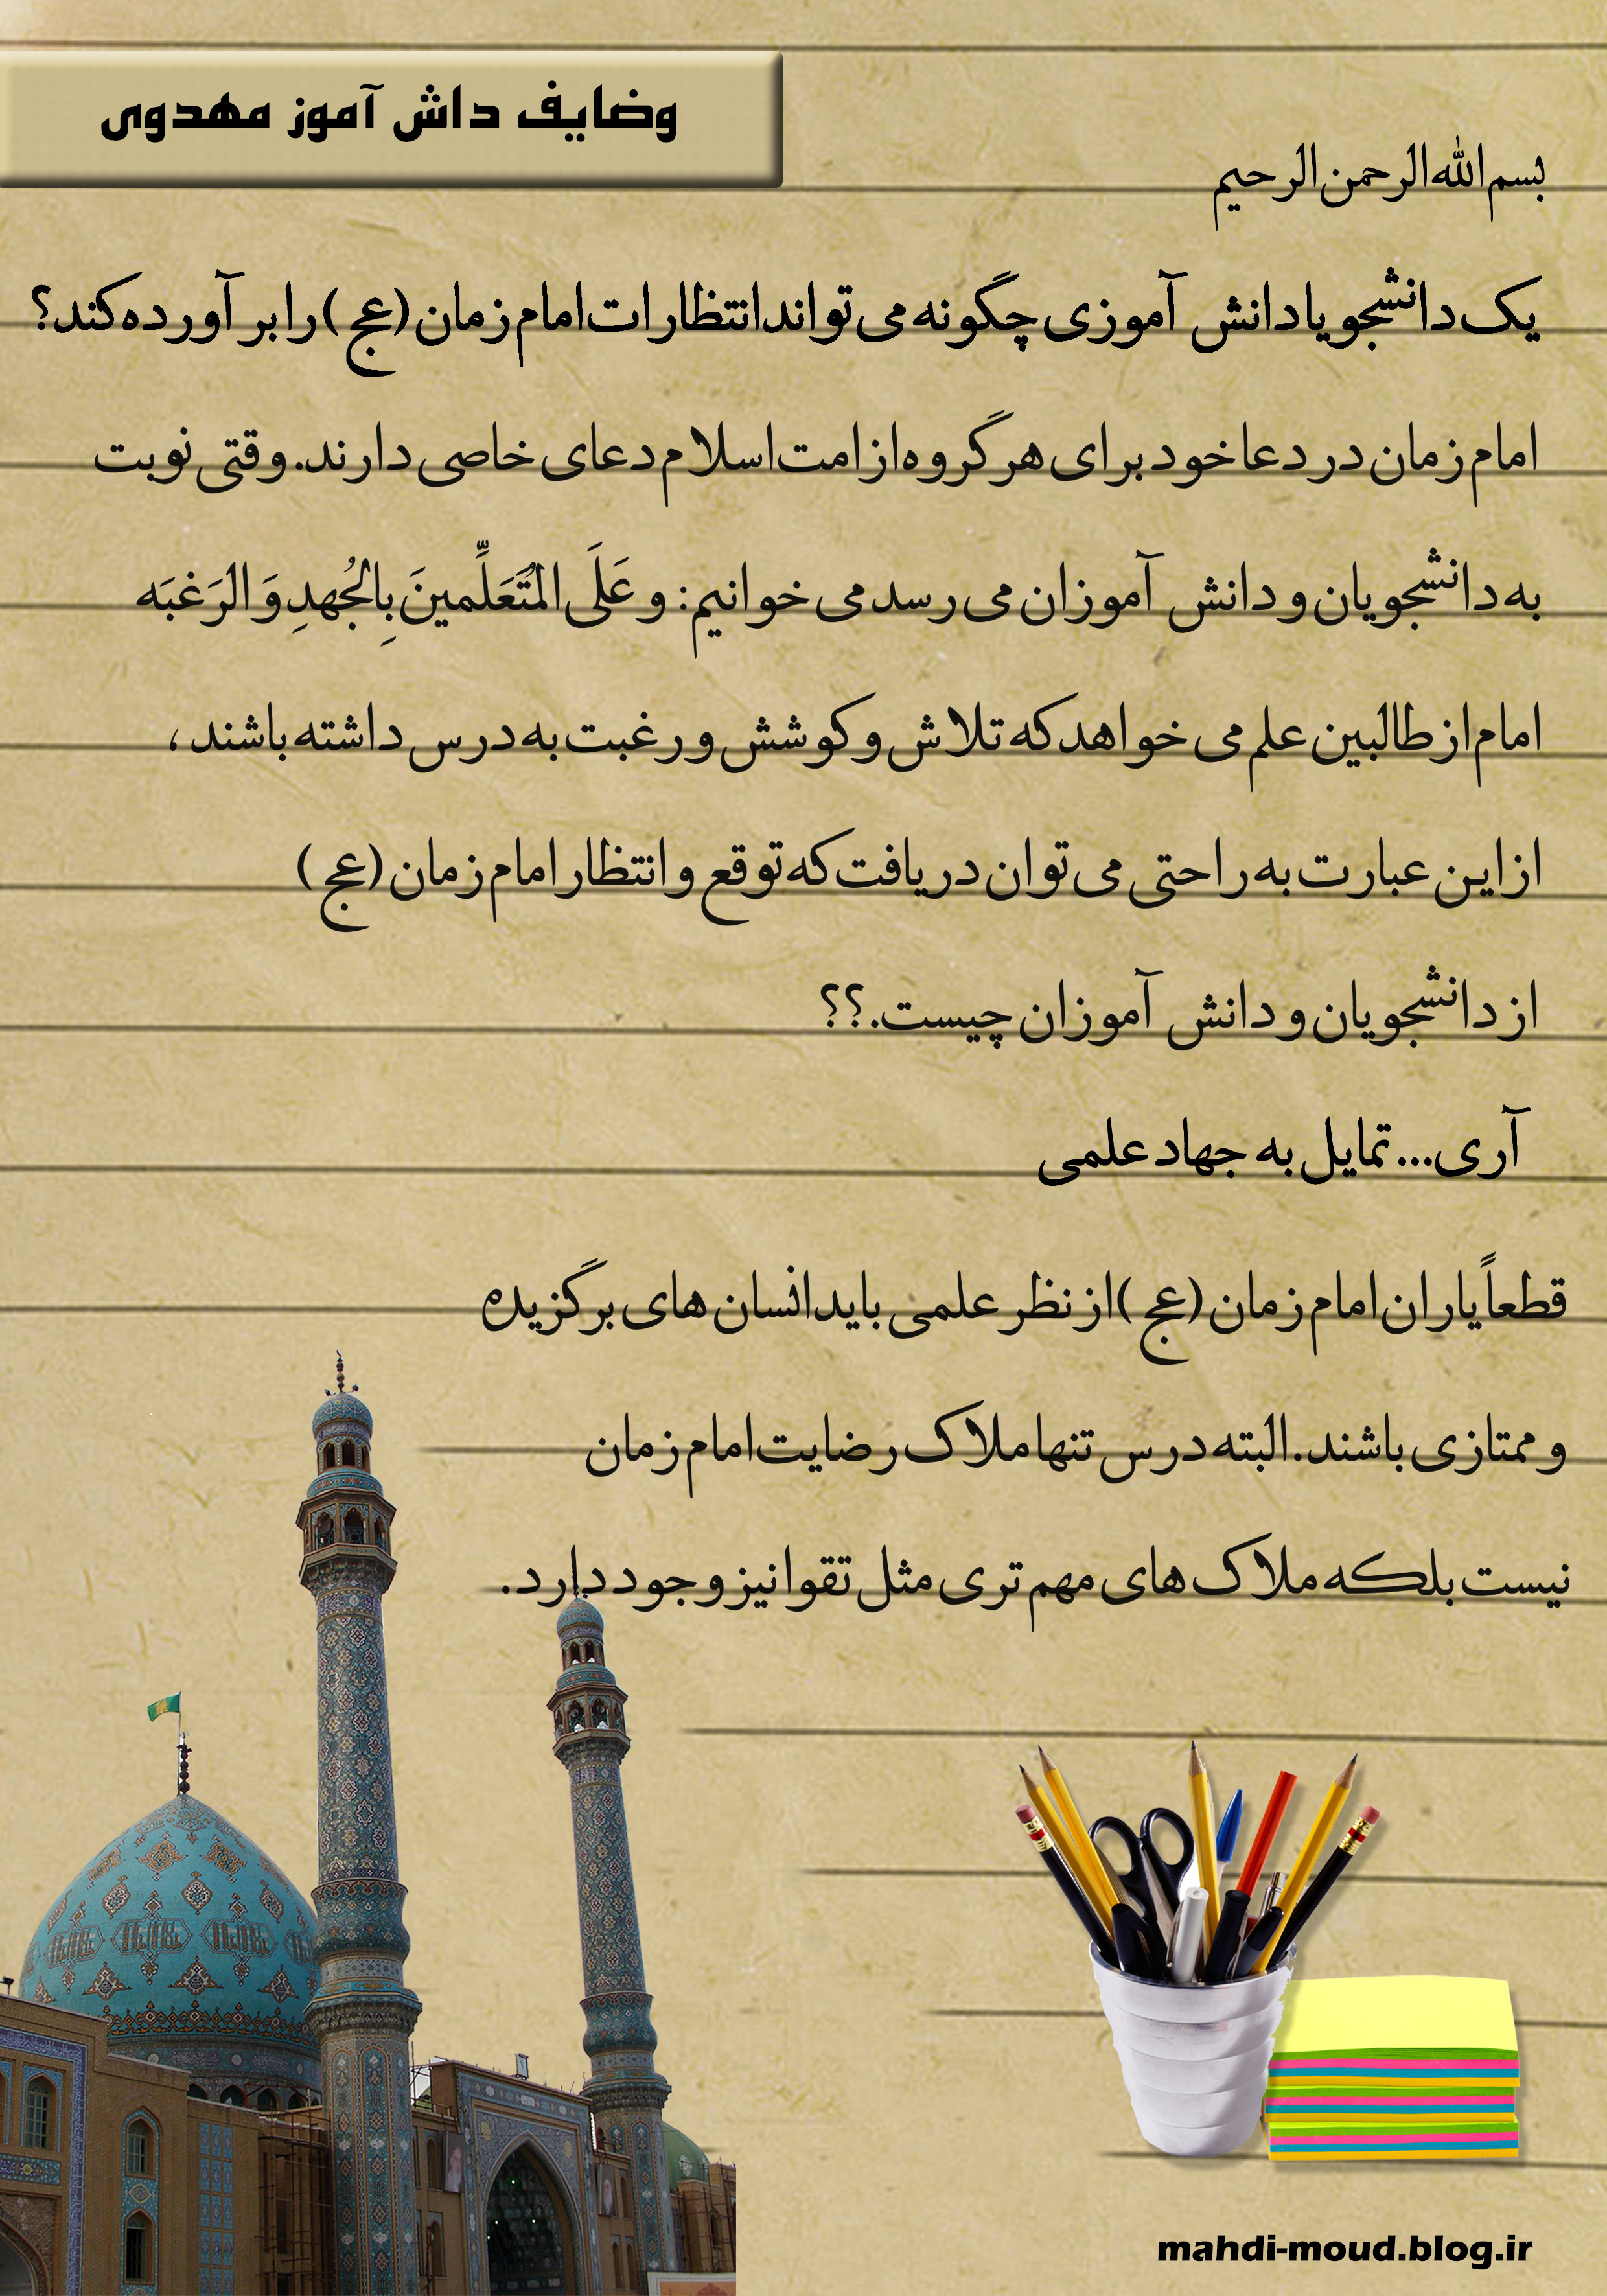 وضایف داش آموز مهدوی
بسم الله الرحمن الرحیم
یک دانشجو یا دانش آموزی چگونه می تواند انتظارات امام زمان (عج) را بر آورده کند؟
امام زمان در دعا خود برای هر گروه از امت اسلام دعای خاصی دارند. وقتی نوبت
به دانشجویان و دانش آموزان می رسد می خوانیم: و عَلَی المُتَعَلِّمینَ بِالجُهدِ وَ الرَغبَه
امام از طالبین علم می خواهد که تلاش و کوشش و رغبت به درس داشته باشند،
از این عبارت به راحتی می توان دریافت که توقع و انتظار امام زمان (عج)
از دانشجویان و دانش آموزان چیست.؟؟
آری... تمایل به جهاد علمی
قطعاً یاران امام زمان (عج) از نظر علمی باید انسان های برگزیده
و ممتازی باشند. البته درس تنها ملاک رضایت امام زمان
نیست بلکه ملاک های مهم تری مثل تقوا نیز وجود دارد.
mahdi-moud.blog.ir